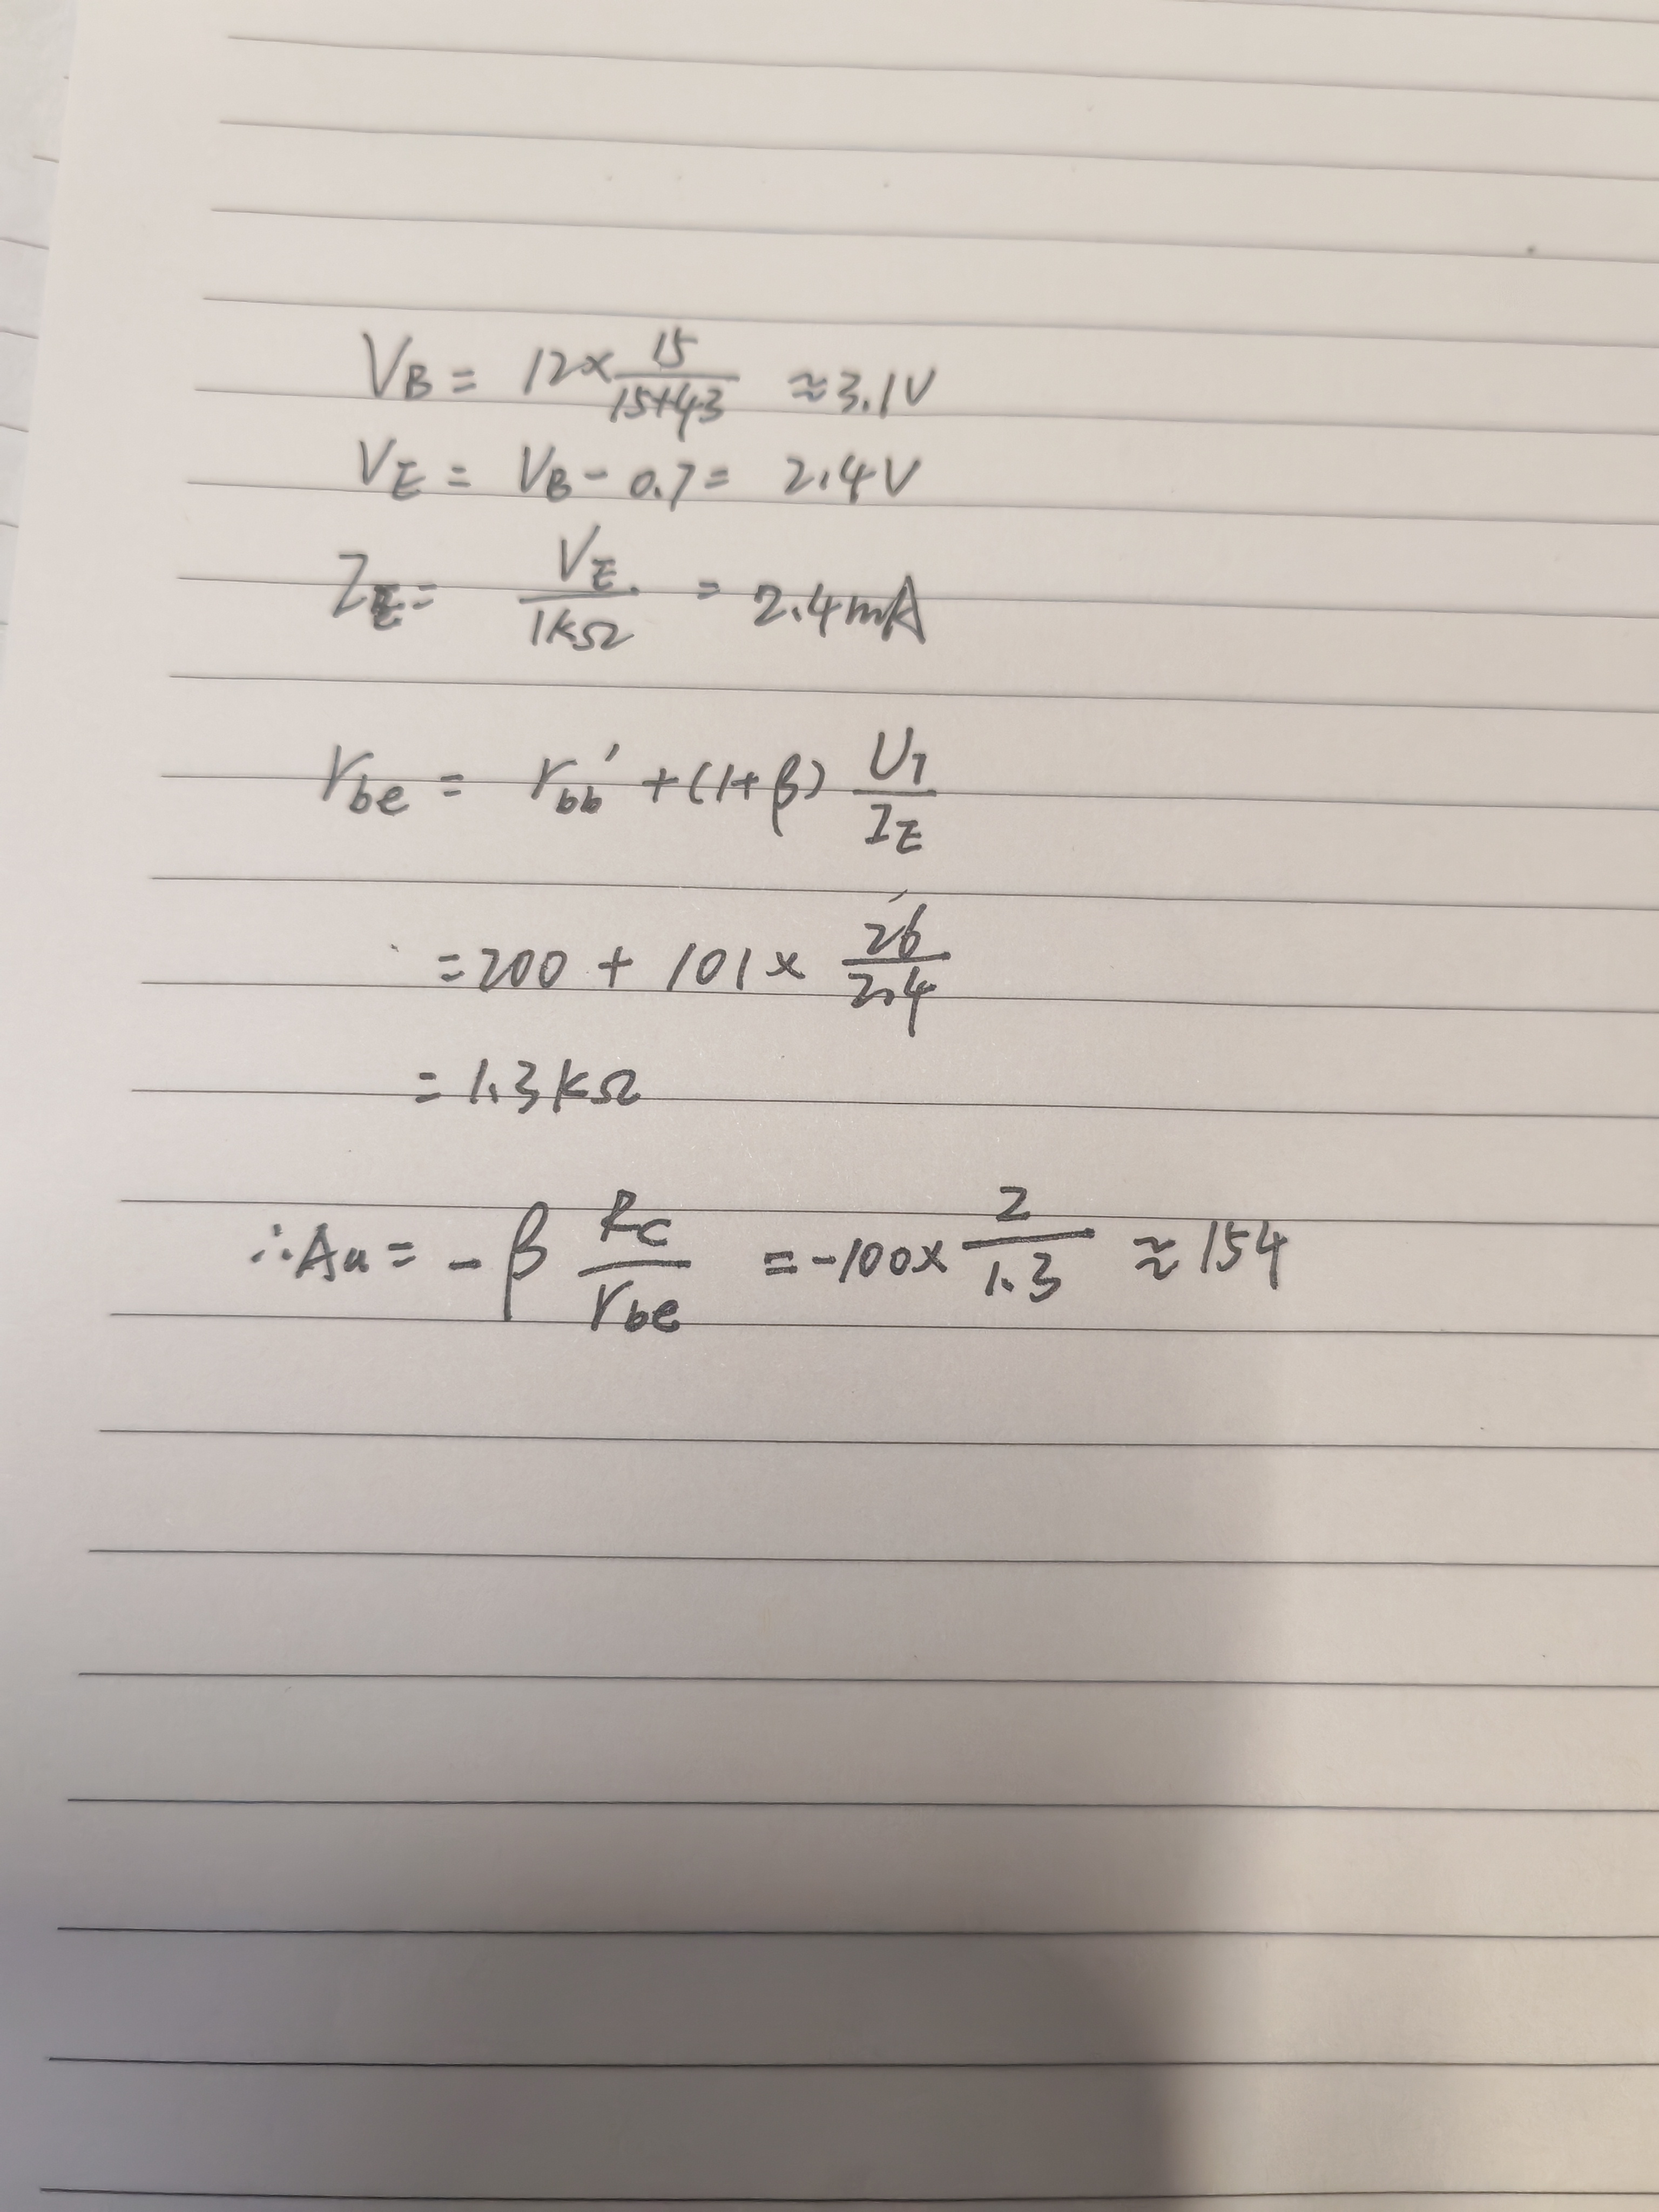 V_B = 12 × 15/(15+43) ≈ 3.1V
V_E = V_B - 0.7 = 2.4V
I_E = V_E/1kΩ = 2.4mA
r_be = r_bb' + (1+β) U_T/I_E
= 200 + 101 × 26/2.4
= 1.3kΩ
∴ Au = -β R_C/r_be = -100 × 2/1.3 ≈ 154